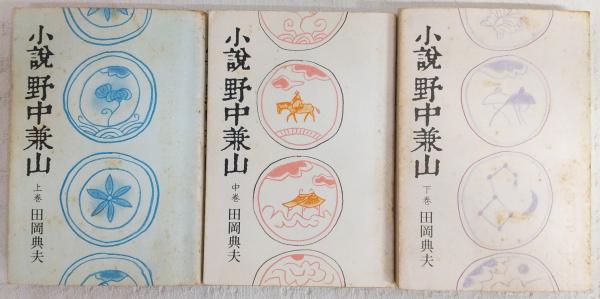 小説 野中兼山
上巻 田岡典夫
小説 野中兼山
中巻 田岡典夫
小説 野中兼山
下巻 田岡典夫